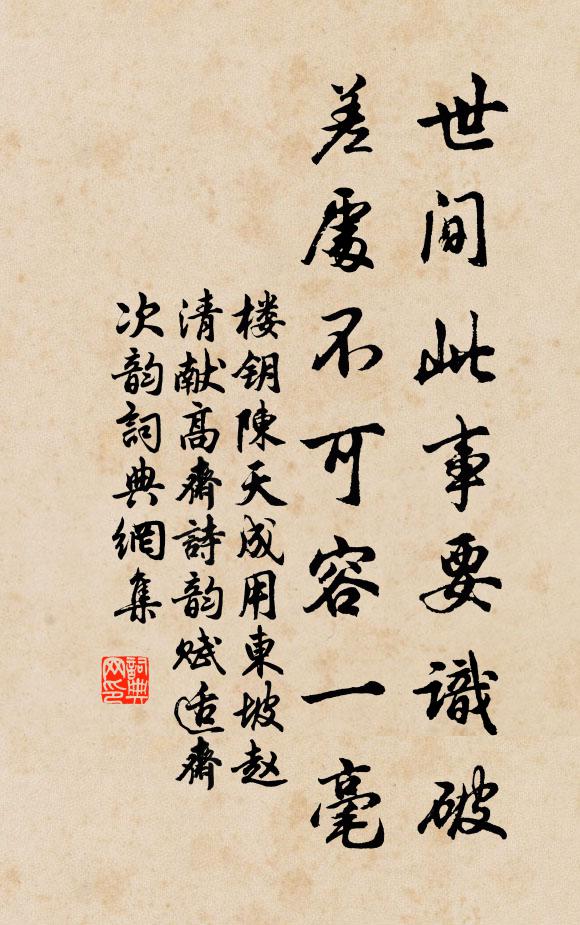 世间此事要識破
差處不可容一毫
楼钥陳天成用東坡赵
清献高齋詩韵赋适齋
次韵詞典網集
詞典网印